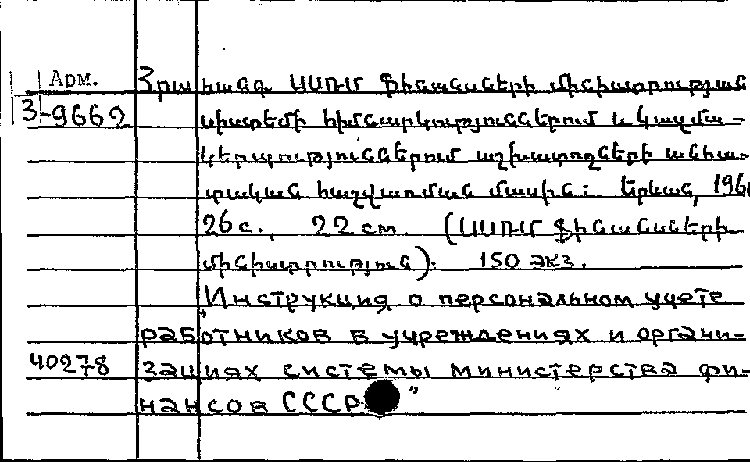 Арм. Հրահանգ ՍՍՌՄ ֆինանսների մինիստրության
3-9662 սիստեմի հիմնարկություններում և կազմա-
կերպություններում աշխատողների անհա-
տական հաշվառման մասին: Երևան, 196
26 с., 22 см. (ՍՍՌՄ ֆինանսների
մինիստրություն). 150 экз.
"Инструкция о персональном учете
работников в учреждениях и органи-
40278 зациях системы министерства фи-
нансов СССР"